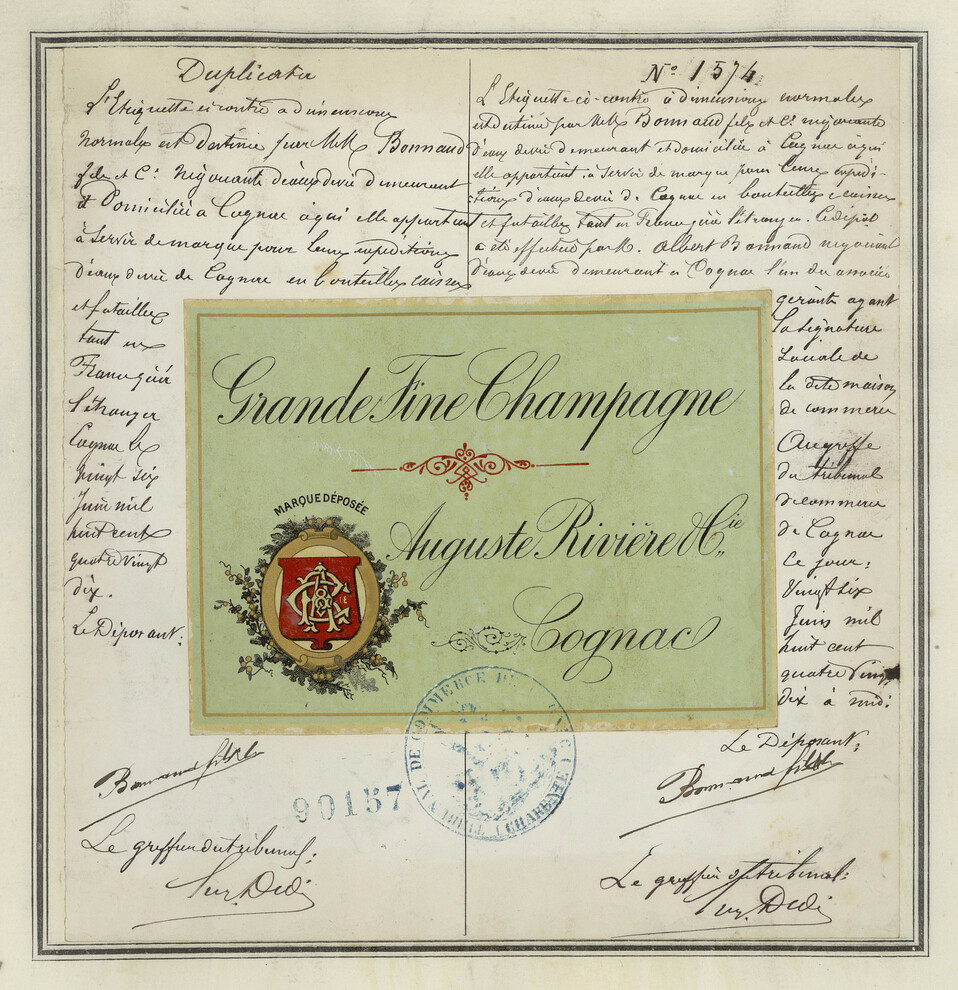 Duplicata
L'Etiquette ci contre a dimensions
normales est destinée par MM Bonnaud
fils et Cie Négociants d'eaux de vie demeurant
et Domiciliés à Cognac à qui elle appartient
à servir de marque pour leurs expéditions
d'eaux de vie de Cognac en bouteilles caisses
et futailles
tant en
France qu'à
l'étranger
Cognac le
vingt six
Juin mil
huit cent
quatre vingt
dix.
Le Déposant:
Bonnaud fils &
Le greffier du tribunal:
No 1574
L'Etiquette ci-contre à dimensions normales
est destinée par MM Bonnaud fils et Cie négociants
d'eaux de vie demeurant et domiciliés à Cognac à qui
elle appartient à servir de marque pour leurs expédi-
tions d'eaux de vie de Cognac en bouteilles caisses
et futailles tant en France qu'à l'étranger. Ce dépôt
a été effectué par M. Albert Bonnaud négociant
d'eaux de vie demeurant à Cognac l'un des associés
gérants ayant
la signature
sociale de
la dite maison
de commerce
Au greffe
du tribunal
de commerce
de Cognac
ce jour:
Vingt six
Juin mil
huit cent
quatre vingt
dix à midi:
Le Déposant:
Bonnaud fils &
Le greffier du tribunal:
Grande Fine Champagne
MARQUE DÉPOSÉE
Auguste Rivière & Cie
Cognac
90157
TRIBUNAL DE COMMERCE DE COGNAC (CHARENTE)